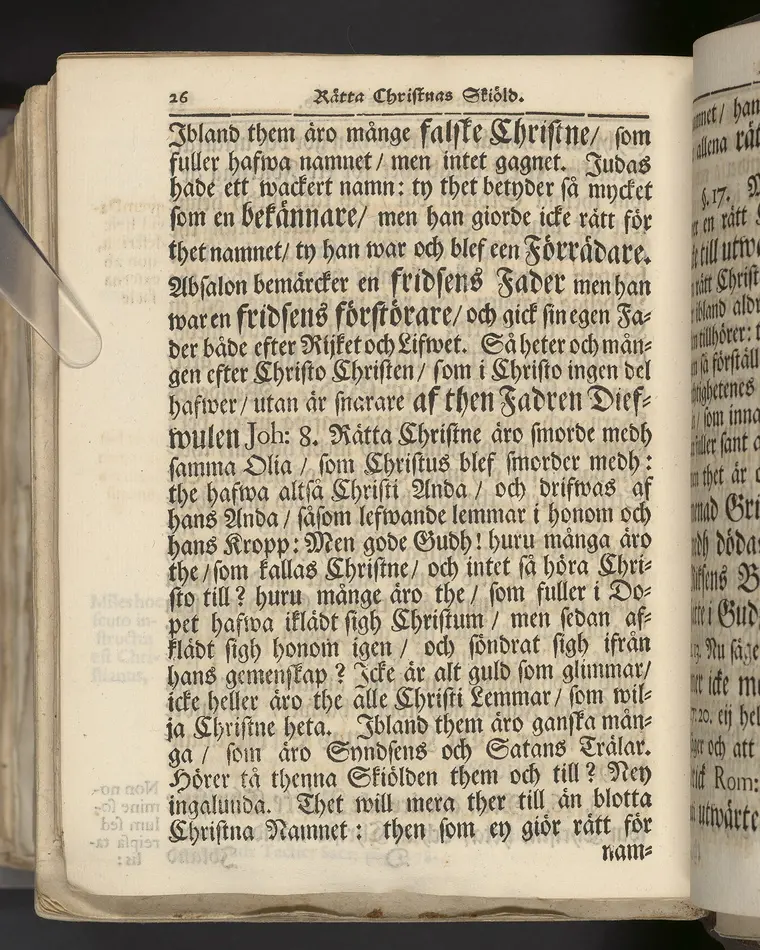 26 Rätta Christnas Skiöld.
Ibland them äro många falske Christne/ som
fuller hafwa namnet/ men intet gagnet. Judas
hade ett wackert namn: ty thet betyder så mycket
som en bekännare/ men han giorde icke rätt för
thet namnet/ ty han war och blef een Förrädare.
Absalon bemärcker en fridsens Fader men han
war en fridsens förstörare/ och gick sin egen Fa-
der både efter Rijket och Lifwet. Så heter och mån-
gen efter Christo Christen/ som i Christo ingen del
hafwer/ utan är snarare af then Fadren Dief-
wulen Joh: 8. Rätta Christne äro smorde medh
samma Olia/ som Christus blef smorder medh:
the hafwa altså Christi Anda/ och drifwas af
hans Anda/ såsom lefwande lemmar i honom och
hans Kropp: Men gode Gudh! huru många äro
the/ som kallas Christne/ och intet så höra Chri-
sto till? huru månge äro the/ som fuller i Do-
pet hafwa iklädt sigh Christum/ men sedan af-
klädt sigh honom igen/ och söndrat sigh ifrån
hans gemenskap? Icke är alt guld som glimmar/
icke heller äro the alle Christi Lemmar/ som wil-
ja Christne heta. Ibland them äro ganska mån-
ga/ som äro Syndsens och Satans Trälar.
Hörer tå thenna Skiölden them och till? Ney
ingalunda. Thet will mera ther till än blotta
Christna Namnet: then som ey giör rätt för
nam-